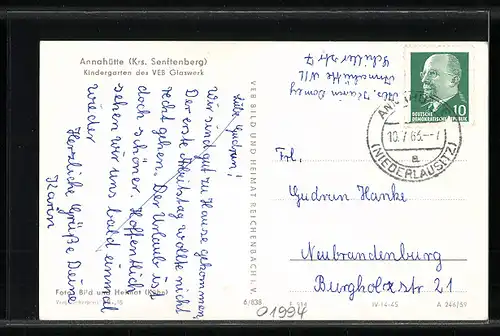 Annahütte (Krs. Senftenberg)
Kindergarten des VEB Glaswerk
Liebe Gudrun!
Wir sind gut zu Hause gekommen.
Der erste Arbeitstag wollte nicht
recht gehen. Der Urlaub ist
doch schöner. Hoffentlich
sehen wir uns bald einmal
wieder
Herzliche Grüße Deine
Karin
Abs. Karin
Annahütte N/L
Schillerstr 7
VEB BILD UND HEIMAT REICHENBACH I. V.
DEUTSCHE
DEMOKRATISCHE REPUBLIK
10
10.7.65
a
(NIEDERLAUSITZ)
Frl.
Gudrun Hanke
Neubrandenburg
Burgholzstr 21
Foto: Bild und Heimat
6/638
IV-14-45
A 246/59
01994